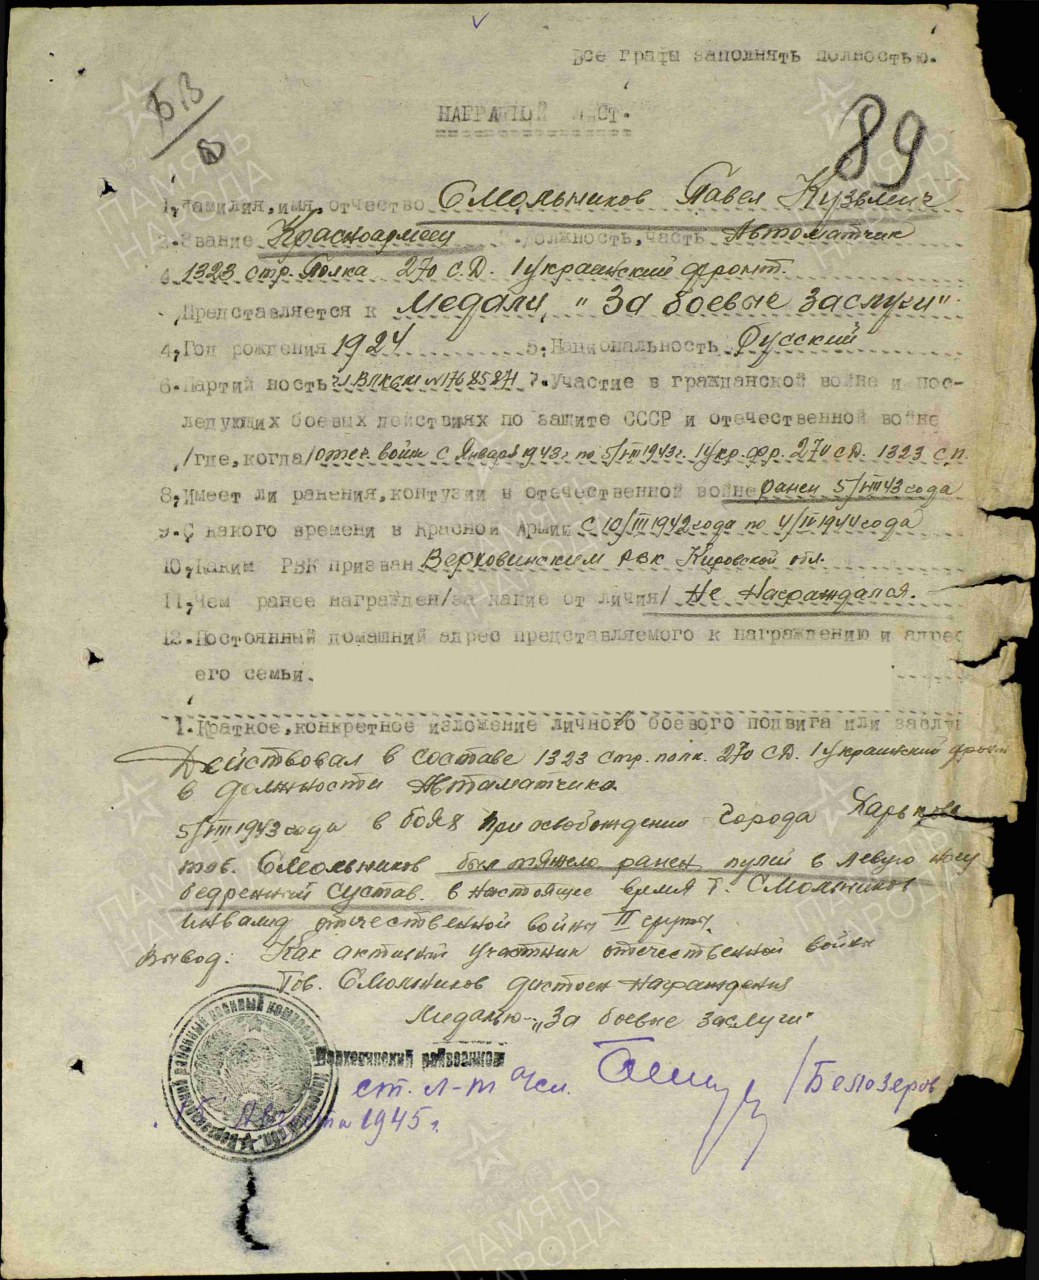 Все графы заполнять полностью.
БВ
НАГРАДНОЙ ЛИСТ.
89
1, Фамилия, имя, отчество Смольников Павел Кузьмич
2. Звание Красноармеец 3. Должность, часть Автоматчик
1323 стр. Полка 270 с.д. 1 украинский фронт.
Представляется к Медали "За боевые заслуги"
4, Год рождения 1924 5. Национальность Русский
6. Партийность чл ВЛКСМ №17685871 7. Участие в гражданской войне и пос-
ледующих боевых действиях по защите СССР и отечественной войне
/где, когда/ отеч. войн с Января 1943г по 5/VIII 1943г. 1 Укр. фр. 270 с.д. 1323 с.п.
8, Имеет ли ранения, контузии в отечественной войне ранен 5/VIII 43 года
9. С какого времени в Красной Армии с 10/III 1942 года по 4/IV 1944 года
10, Каким РВК призван Верховинским РВК Кировской обл.
11, Чем ранее награжден/за какие отличия/ Не Награждался.
12. Постоянный домашний адрес представляемого к награждению и адрес
его семьи.
1. Краткое, конкретное изложение личного боевого подвига или заслуг
Действовал в составе 1323 стр. полк. 270 с.д. 1 украинский фронт
в должности Автоматчика
5/VIII 1943 года в боях при освобождении города Харькова
тов. Смольников был тяжело ранен пулей в левую ногу
бедренный сустав. в настоящее время т. Смольников
инвалид отечественной войны II группы.
Вывод: Как активный участник отечественной войны
Тов. Смольников достоин награждения
Медалью - "За боевые заслуги"
районный военный комиссариат
ст. л-т а/сл. /Белозеров
Августа 1945 г.
ПАМЯТЬ НАРОДА